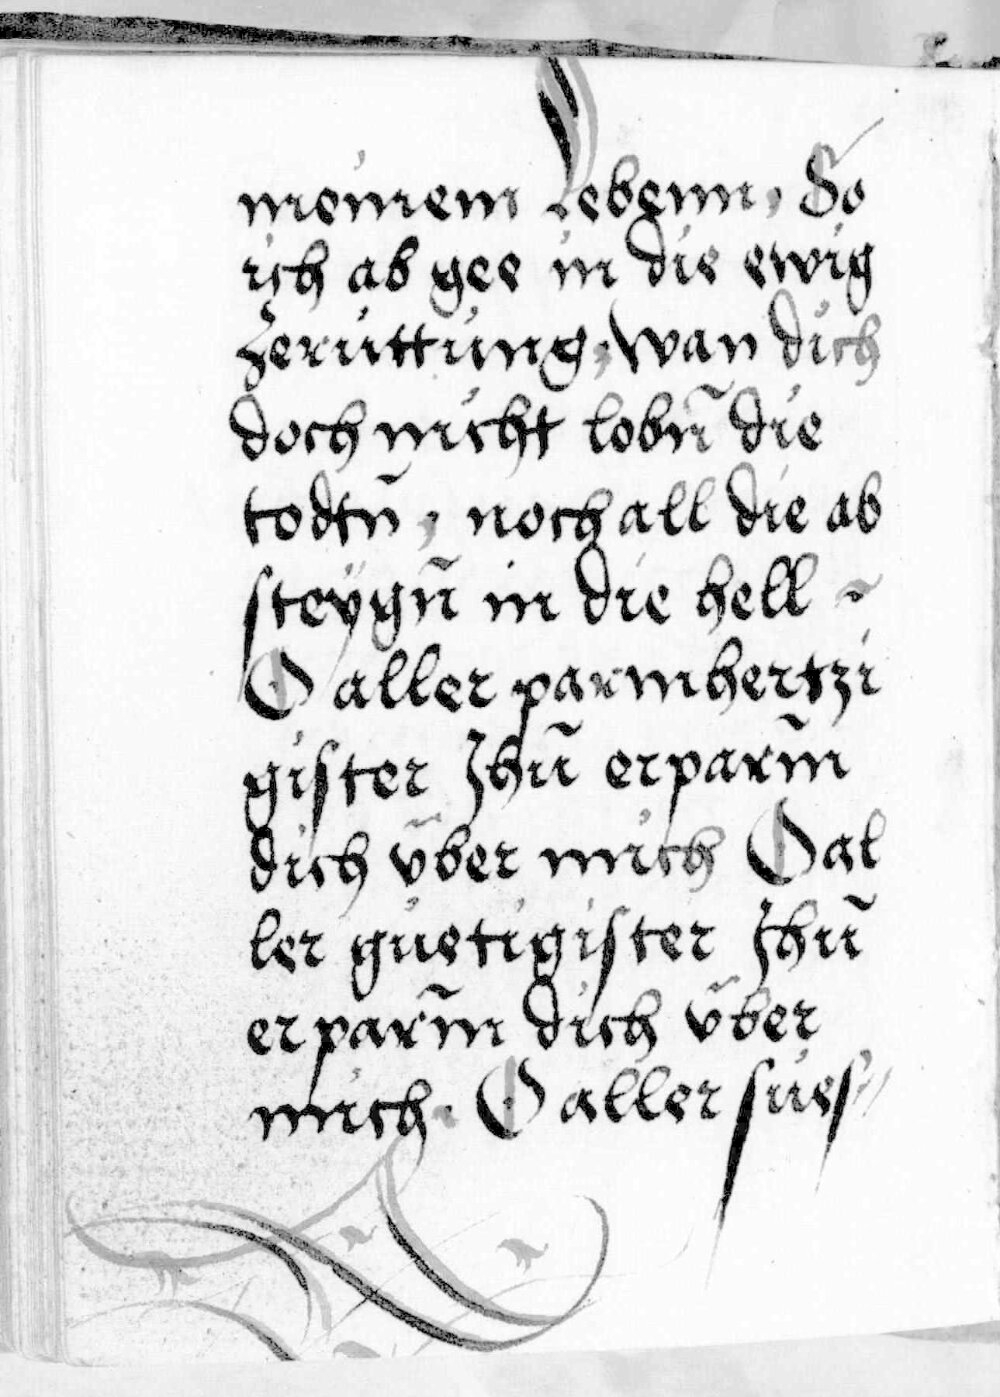 meinem Lebenn, So
ich ab gee in die ewig
Zeruttung, wan dich
doch nicht lobn̄ die
todtn̄, noch all die ab
steÿgn̄ in die hell ~
O aller parmhertzi
gister Jhu̅ erparm̄
dich v̄ber mich O al
ler guetigister Jhu̅
erparm̄ dich v̄ber
mich. O aller sues//